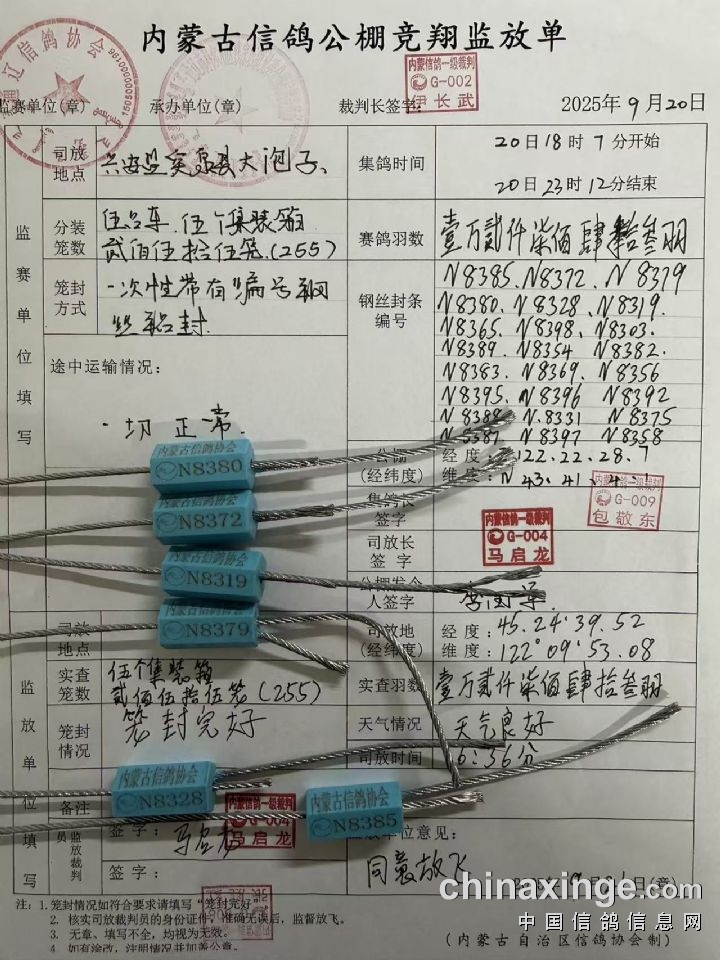 内蒙古信鸽公棚竞翔监放单
内蒙信鸽一级裁判
G-002
伊长武
监赛单位(章) 承办单位(章) 裁判长签字: 2025年9月20日
监赛单位填写
司放地点 兴安盟突泉县大泡子、
集鸽时间 20日18时7分开始
20日23时12分结束
分装笼数 伍台车.伍个集装箱
贰佰伍拾伍笼.(255)
赛鸽羽数 壹万贰仟柒佰肆拾叁羽
笼封方式 一次性带有编号钢
丝铅封.
钢丝封条编号
N8385.N8372.N8379
N8380.N8328.N8319.
N8365.N8398.N8303.
N8389.N8354 N8382.
N8383.N8369.N8356
N8395.N8396 N8392
N8388 N.8331 N8375
N8387 N8397 N8358
途中运输情况:
一切正常.
公棚(经纬度) 经度: 122.22.28.7
维度:N 43.41.4.1
内蒙古信鸽协会
N8380
内蒙古信鸽协会
N8372
内蒙古信鸽协会
N8319
内蒙古信鸽协会
N8379
集鸽长签字
内蒙信鸽一级裁判
G-009
包敬东
司放长签字
内蒙信鸽一级裁判
G-004
马启龙
公棚发令人签字
监放单位填写
司放地点
司放地(经纬度) 经度:45.24.39.52
维度:122°09'53.08
实查笼数 伍个集装箱
贰佰伍拾伍笼(255)
实查羽数 壹万贰仟柒佰肆拾叁羽
笼封情况 笼封完好
天气情况 天气良好
司放时间 6:36分
内蒙古信鸽协会
N8328
内蒙古信鸽协会
N8385
备注
监放裁判员
签字: 马启龙
内蒙信鸽一级裁判
G-004
马启龙
签字:
监放单位意见:
同意放飞
(章)
注: 1.笼封情况如符合要求请填写"笼封完好"
2. 核实司放裁判员的身份证件,准确无误后,监督放飞。
3. 无章、填写不全,均视为无效。
4. 如有涂改,注明情况并加盖公章。
(内蒙古自治区信鸽协会制)
chinaxinge.com
中国信鸽信息网